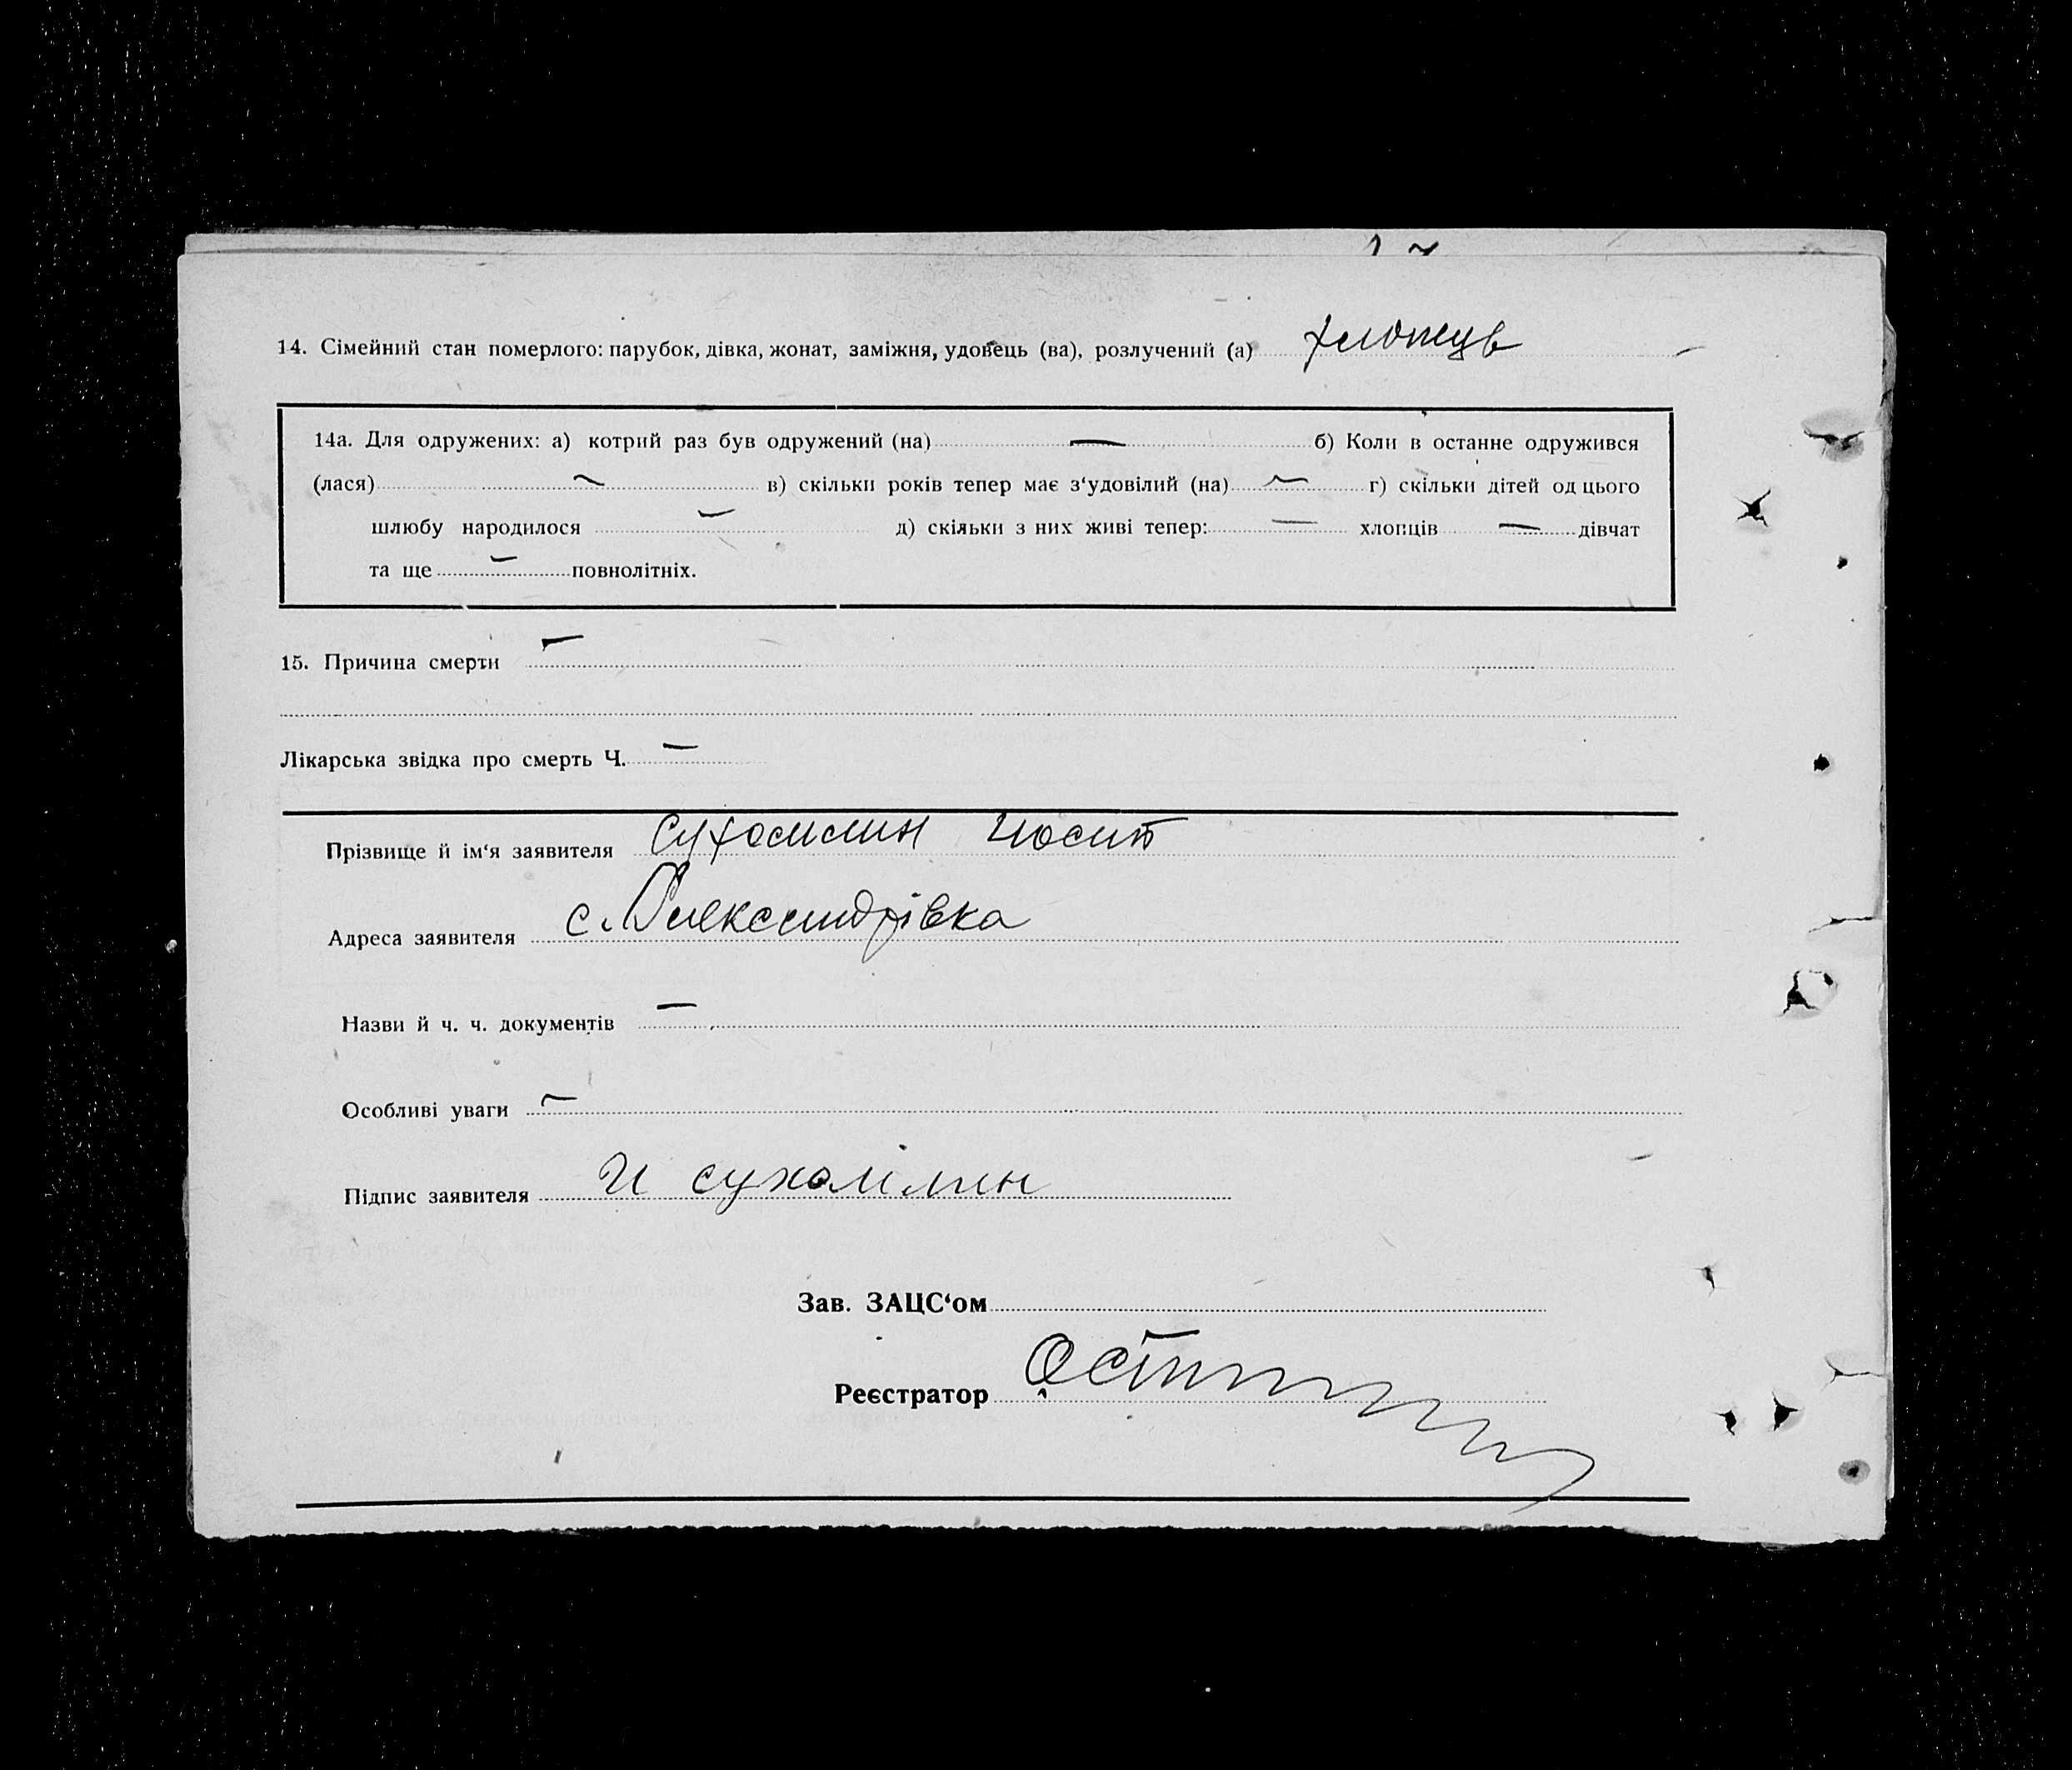 14. Сімейний стан померлого: парубок, дівка, жонат, заміжня, удовець (ва), розлучений (а) хлопець
14а. Для одружених: а) котрий раз був одружений (на) — б) Коли в останне одружився
(лася) — в) скільки років тепер має з‘удовілий (на) — г) скільки дітей од цього
шлюбу народилося — д) скільки з них живі тепер: — хлопців — дівчат
та ще — повнолітніх.
15. Причина смерти —
Лікарська звідка про смерть Ч. —
Прізвище й ім‘я заявителя Сухомлин Йосип
Адреса заявителя с. Олександрівка
Назви й ч. ч. документів —
Особливі уваги —
Підпис заявителя И сухомлин
Зав. ЗАЦС‘ом
Реєстратор